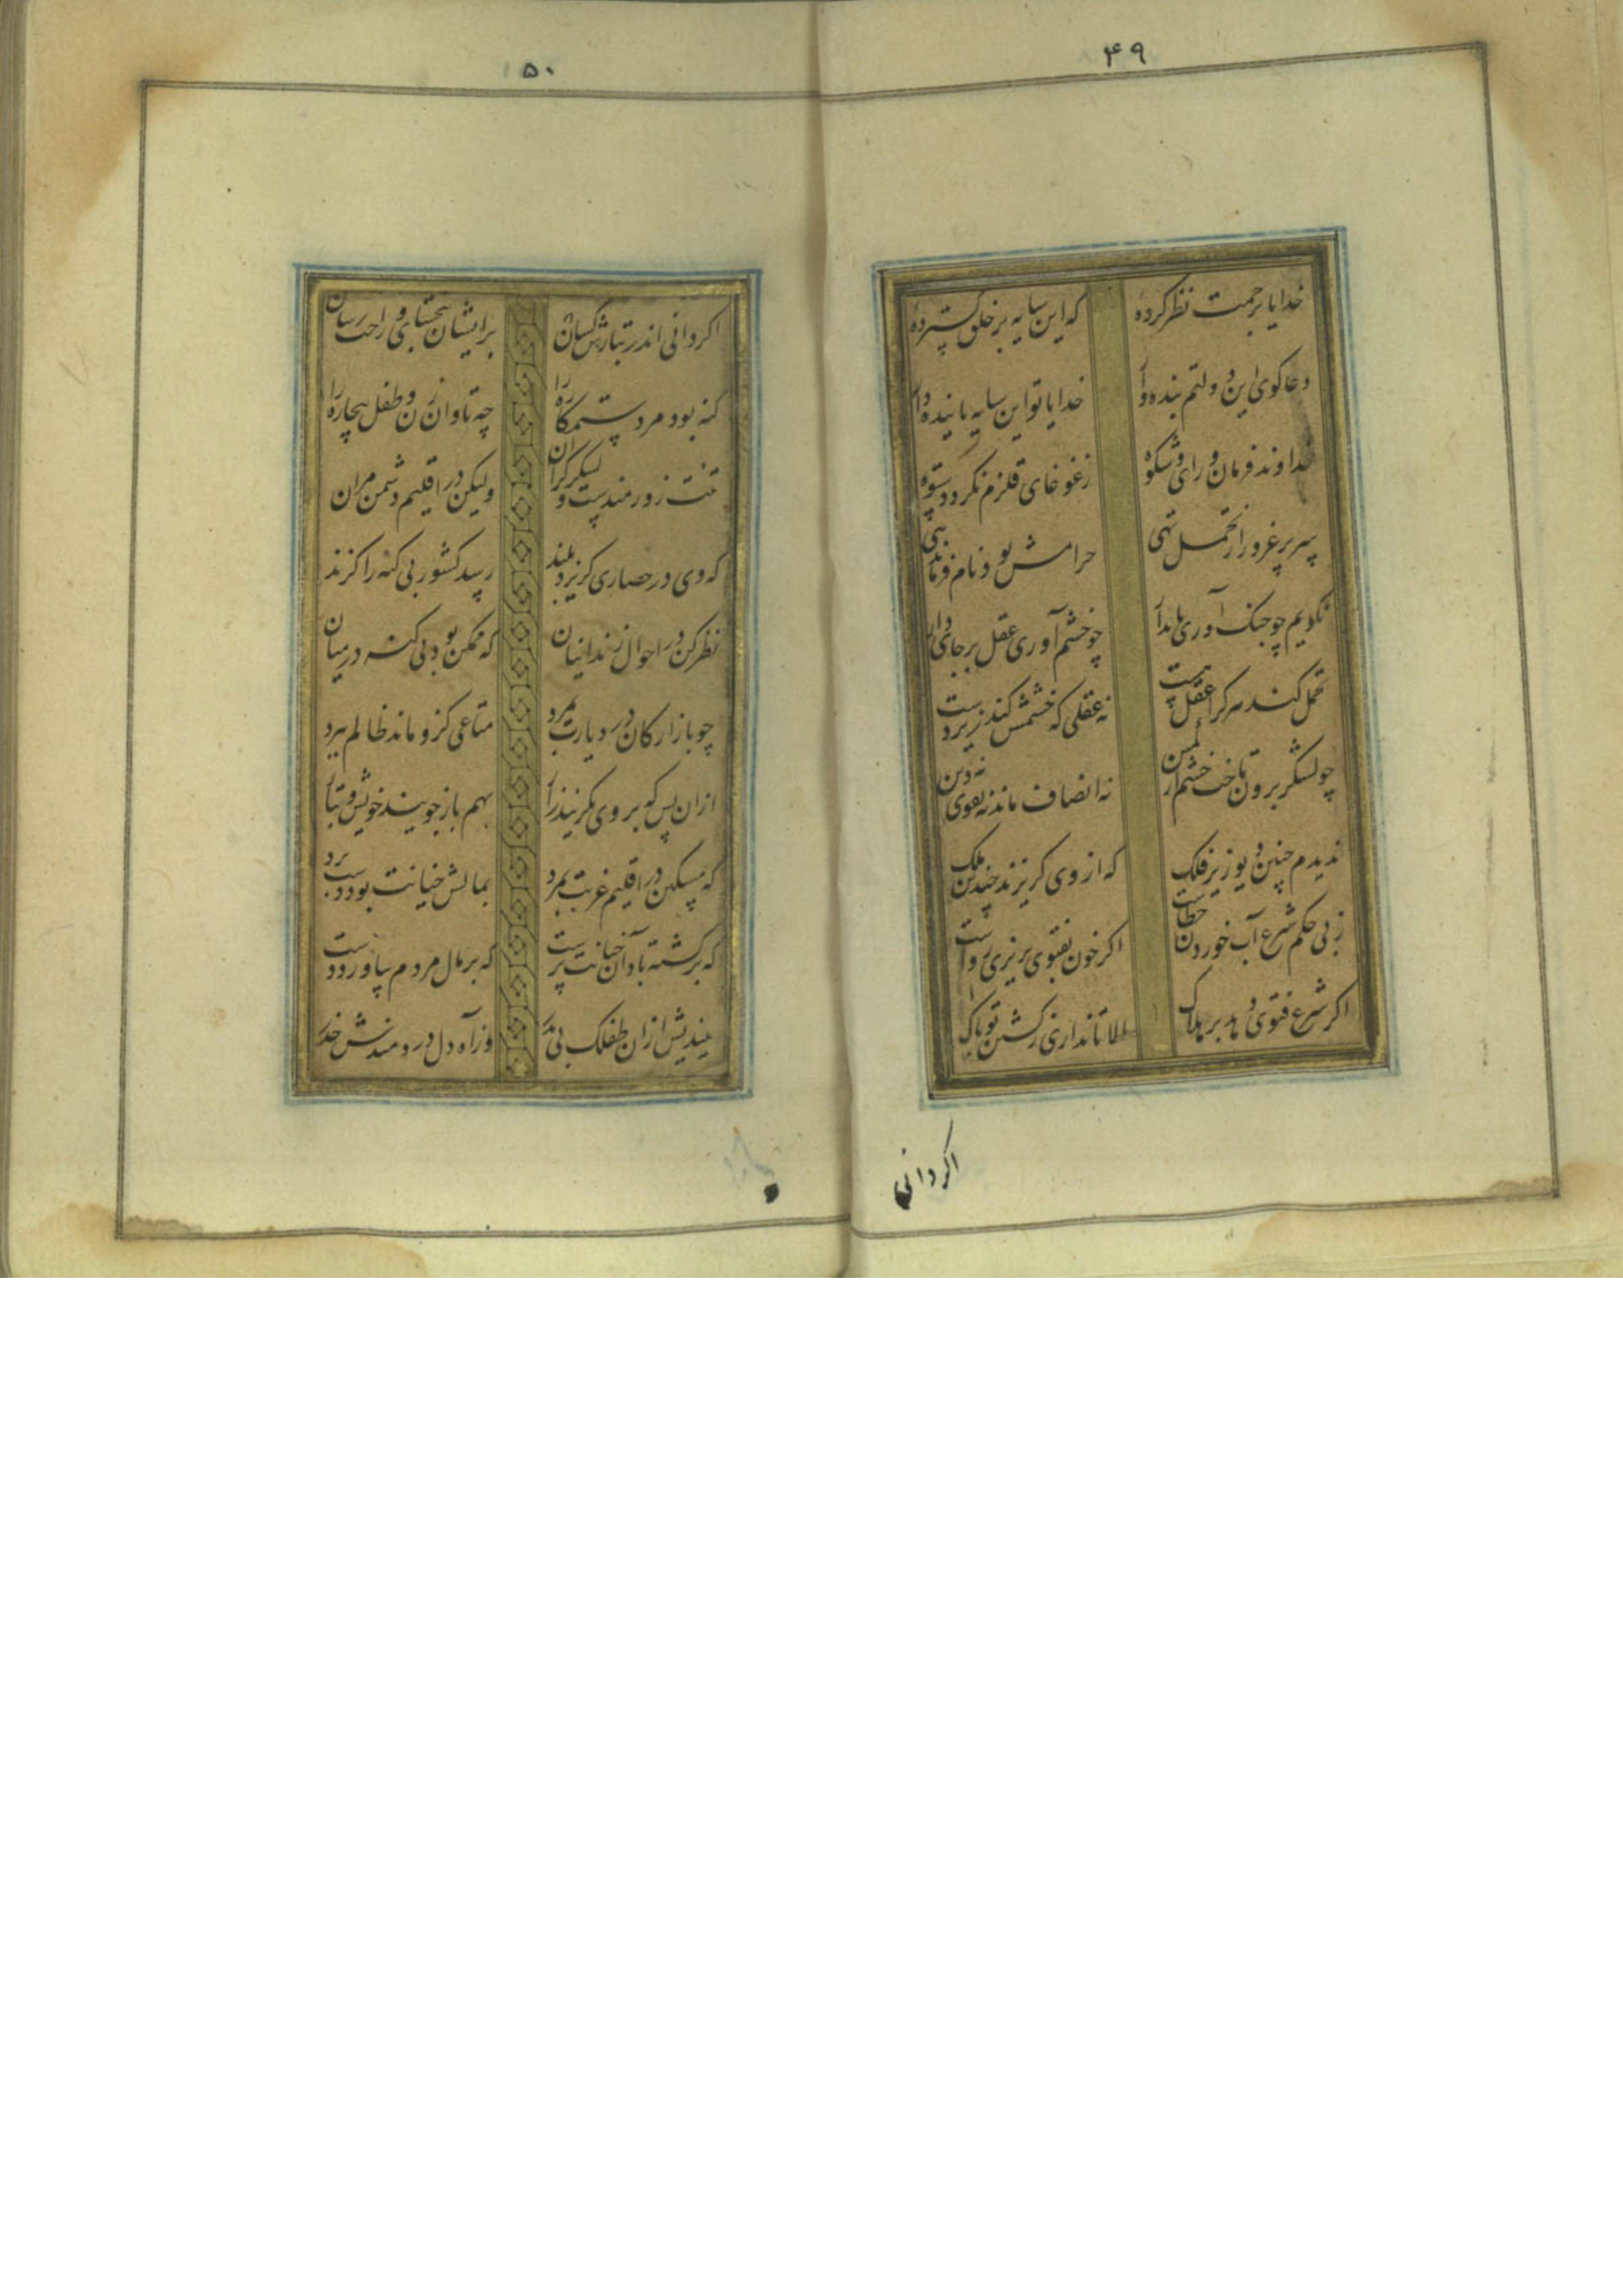 ۴۹
خدایا برحمت نظر کردهٔ که این سایه بر خلق گستردهٔ
دعا کوی این دولتم بنده وار خدایا تو این سایه پاینده دار
خداوند فرمان و رای و شکوه ز غوغای قلزم نکردد ستوه
سر پر غرور از تحمل تهی حرامش بود نام فرماندهی
نکویم چو جنک آوری پا بدار چو خشم آوری عقل بر جای دار
تحمل کند هر کرا عقل هست نه عقلی که خشمش کند زیردست
چو لشکر برون تاخت خشم از کمین نه انصاف ماند نه تقوی نه دین
ندیدم چنین دیو زیر فلک که از وی کریزند چندین ملک
ز بی حکم شرع آب خوردن خطاست اکر خون بفتوی بریزی رواست
اکر شرع فتوی دهد بر هلاک الا تا نداری ز کشتن تو باک
اکر دانی
۵۰
اکر دانی اندر تبارش کسان بر ایشان ببخشای و راحت رسان
کنه بود مرد ستمکاره را چه تاوان زن و طفل بیچاره را
تنت زورمندست و لشکر کران ولیکن در اقلیم دشمن مران
که وی در حصاری کریزد بلند رسد کشور بی کنه را کزند
نظر کن در احوال زندانیان که ممکن بود بی کنه در میان
چو بازارکان در دیارت بمرد متاعی کزو ماند ظالم ببرد
ازان پس که بر وی بکریند زار بهم باز جویند خویش و تبار
که مسکین در اقلیم غربت بمرد بمالش خیانت بود دست برد
که برکشته باد آن خیانت پرست که بر مال مردم بیاورد دست
بیندیش ازان طفلک بی پدر وز آه دل دردمندش حذر